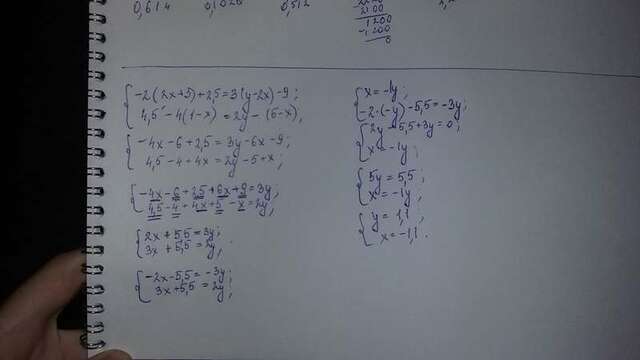 -2(2x+3)+2,5=3(y-2x)-9;
4,5-4(1-x)=2y-(5-x);
-4x-6+2,5=3y-6x-9;
4,5-4+4x=2y-5+x;
-4x-6+2,5+6x+9=3y;
4,5-4+4x+5-x=2y;
2x+5,5=3y;
3x+5,5=2y;
-2x-5,5=-3y;
3x+5,5=2y;
x=-y;
-2·(-y)-5,5=-3y;
2y-5,5+3y=0;
x=-y
5y=5,5;
x=-y;
y=1,1;
x=-1,1.